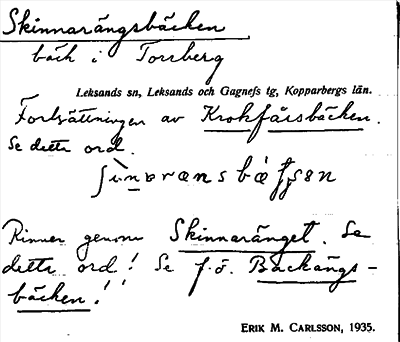 Skinnarängsbäcken
bäck i Torsberg
Leksands sn, Leksands och Gagnefs tg, Kopparbergs län.
Fortsättningen av Krokfårsbäcken.
Se detta ord.
Rinner genom Skinnaränget. Se
detta ord! Se f.ö. Backängs-
bäcken!
ERIK M. CARLSSON, 1935.